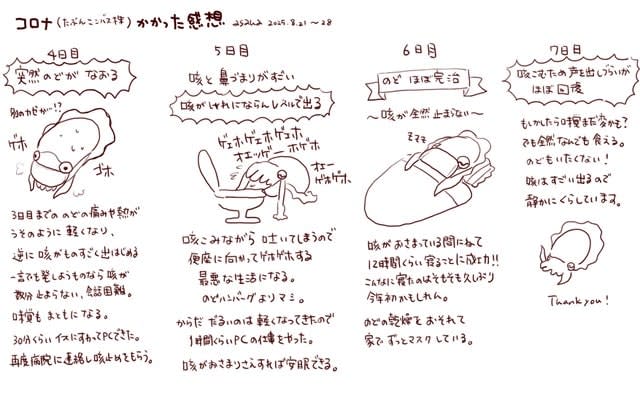 コロナ(たぶんニンバス株)かかった感想 asaua 2025.8.21〜28
4日目
突然のどがなおる
別のカゼか!?
ゲホ
ゴホ
3日目までののどの痛みや熱が
うそのように軽くなり、
逆に咳がものすごく出はじめる
一言でも発しようものなら咳が
数分止まらない、会話困難。
味覚もまともになる。
30分くらいイスにすわってPCできた。
再度病院に連絡し咳止めをもらう。
5日目
咳と鼻づまりがすごい
咳がしゃれにならんレベルで出る
ゲェホゲェホゲェホ
オエッゲーホゲホ
オエー
ゲホゲホ
咳こみながら吐いてしまうので
便座に向かってゲホゲホする
最悪な生活になる。
のどハンバーグよりマシ。
からだだるいのは軽くなってきたので
1時間くらいPCの仕事をやった。
咳がおさまりさえすれば安眠できる。
6日目
のどほぼ完治
〜咳が全然止まらない〜
咳がおさまっている間にねて
12時間くらい寝ることに成功!!
こんなに寝たのはそもそも久しぶり
今年初かもしれん。
のどの乾燥をおそれて
家でずっとマスクしている。
7日目
咳こむため声を出しづらいが
ほぼ回復
もしかしたら味覚まだ変かも?
でも全然なんでも食える。
のどもいたくない!
咳はすごい出るので
静かにくらしています。
Thank you!